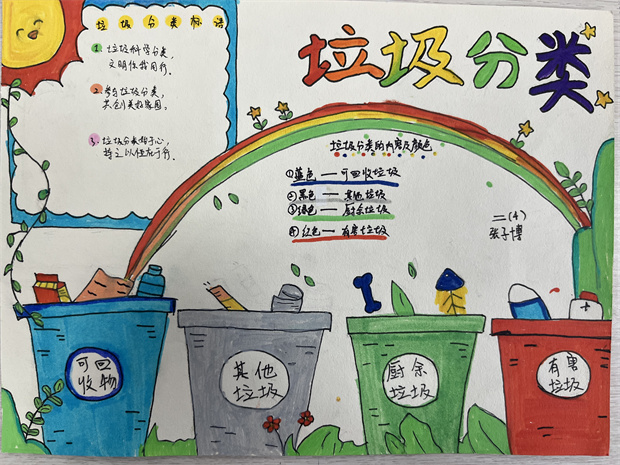 垃圾分类标语
1. 垃圾科学分类,
文明你我同行。
2. 参与垃圾分类,
共创美好家园。
3. 垃圾分类始于心,
持之以恒在于行。
垃圾分类
垃圾分类的内容及颜色
①蓝色—可回收垃圾
②黑色—其他垃圾
③绿色—厨余垃圾
④红色—有害垃圾
二(4)
张子博
可回
收物
其他
垃圾
厨余
垃圾
有害
垃圾